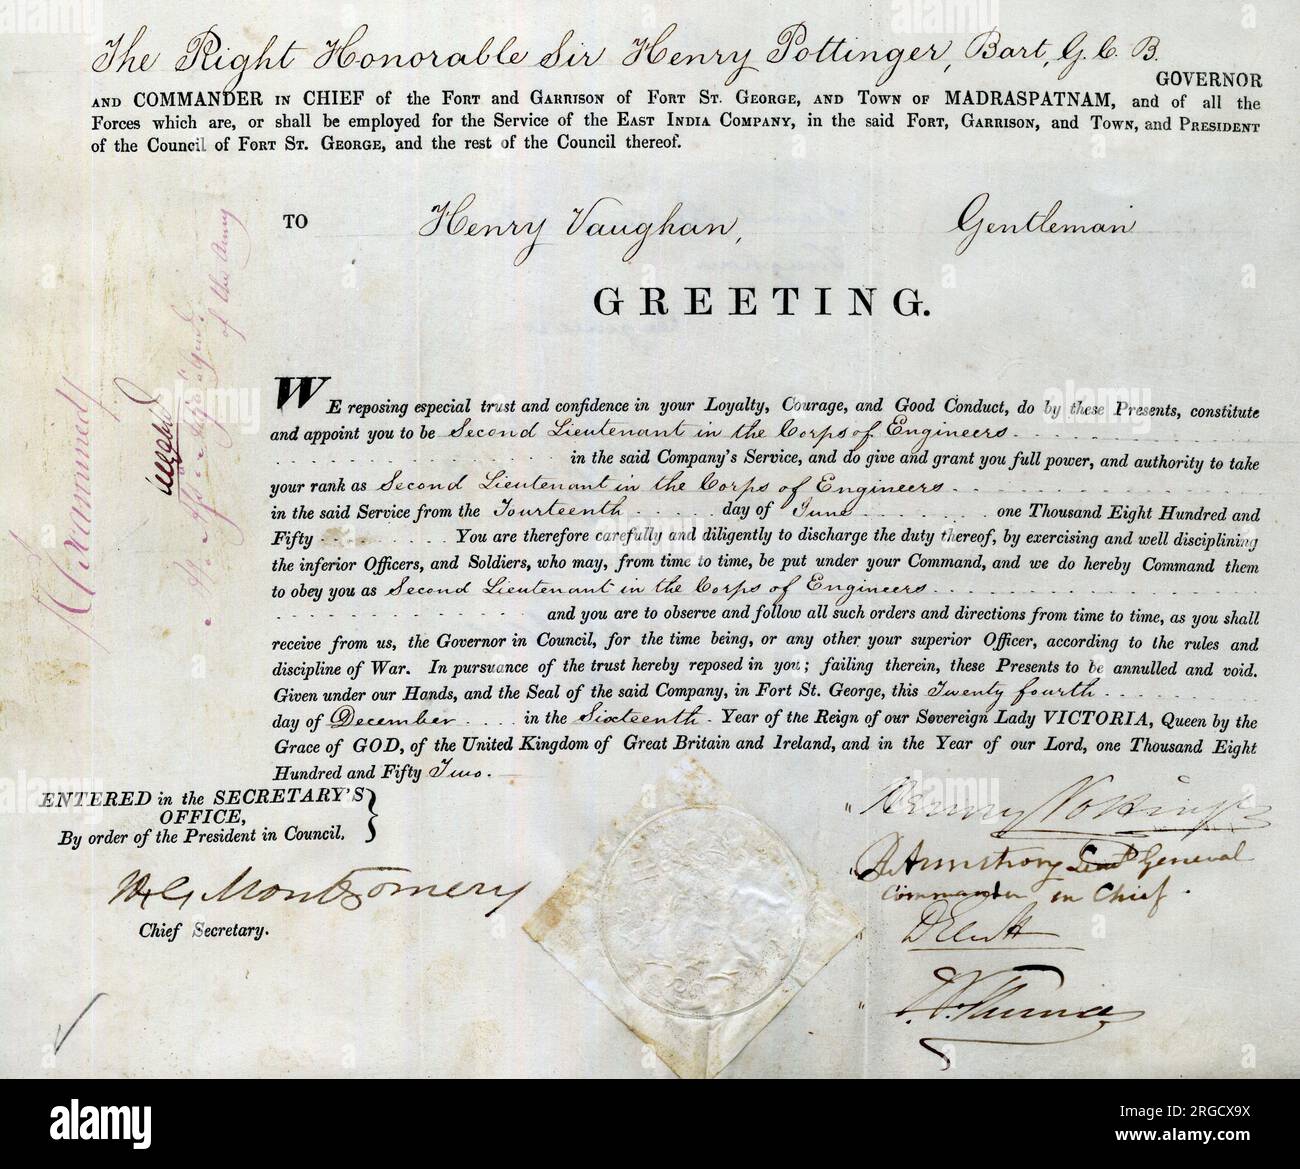 The Right Honorable Sir Henry Pottinger, Bart, G. C. B.
GOVERNOR
AND COMMANDER IN CHIEF of the FORT and GARRISON of FORT ST. GEORGE, AND TOWN OF MADRASPATNAM, and of all the
Forces which are, or shall be employed for the Service of the EAST INDIA COMPANY, in the said FORT, GARRISON, and TOWN, and PRESIDENT
of the Council of FORT ST. GEORGE, and the rest of the Council thereof.
TO Henry Vaughan, Gentleman
GREETING.
WE reposing especial trust and confidence in your Loyalty, Courage, and Good Conduct, do by these Presents, constitute
and appoint you to be Second Lieutenant in the Corps of Engineers
in the said Company's Service, and do give and grant you full power, and authority to take
your rank as Second Lieutenant in the Corps of Engineers
in the said Service from the Fourteenth day of June one Thousand Eight Hundred and
Fifty You are therefore carefully and diligently to discharge the duty thereof, by exercising and well disciplining
the inferior Officers, and Soldiers, who may, from time to time, be put under your Command, and we do hereby Command them
to obey you as Second Lieutenant in the Corps of Engineers
and you are to observe and follow all such orders and directions from time to time, as you shall
receive from us, the Governor in Council, for the time being, or any other your superior Officer, according to the rules and
discipline of War. In pursuance of the trust hereby reposed in you; failing therein, these Presents to be annulled and void.
Given under our Hands, and the Seal of the said Company, in Fort St. George, this Twenty fourth
day of December in the Sixteenth Year of the Reign of our Sovereign Lady VICTORIA, Queen by the
Grace of GOD, of the United Kingdom of Great Britain and Ireland, and in the Year of our Lord, one Thousand Eight
Hundred and Fifty Two.
ENTERED in the SECRETARY'S
OFFICE,
By order of the President in Council.
H C Montgomery
Chief Secretary.
Henry Pottinger
R Armstrong Lieut General
Commander in Chief.
D Elliott
Examined
of the Army
alamy
Image ID: 2RGCX9X
www.alamy.com